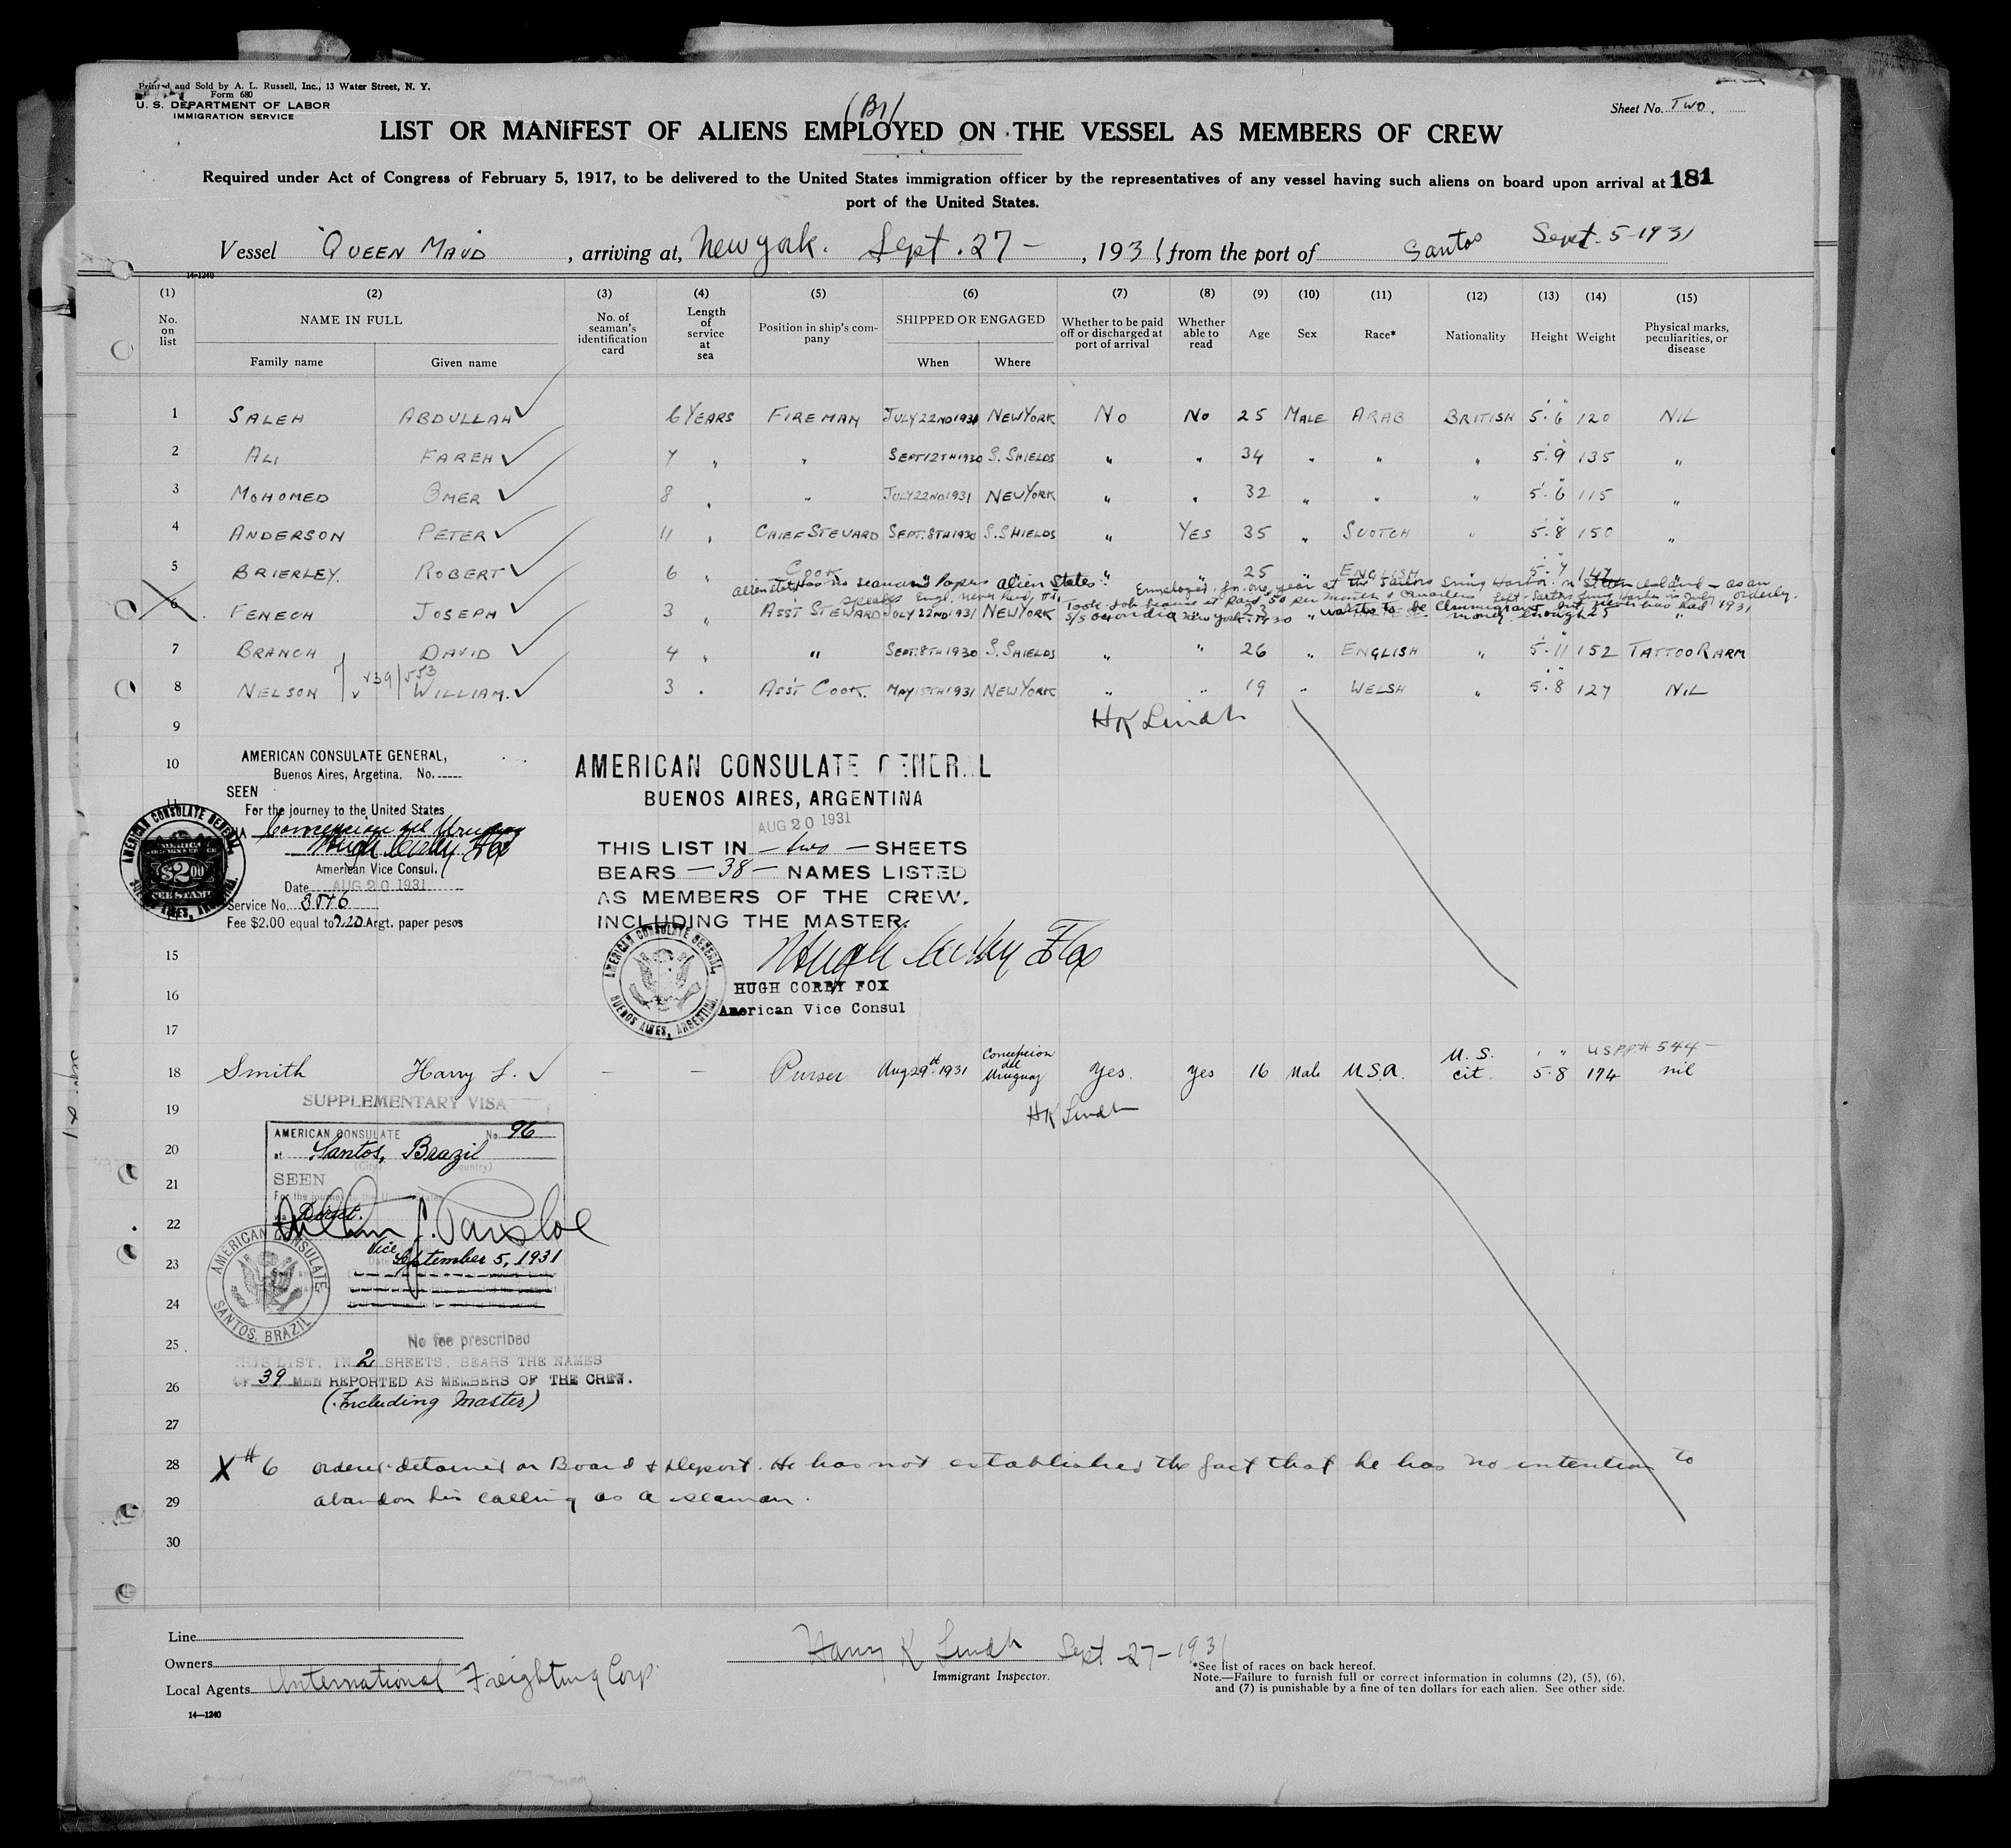 Printed and Sold by A. L. Russell, Inc., 13 Water Street, N. Y.
Form 680
U. S. DEPARTMENT OF LABOR
IMMIGRATION SERVICE
(B)
Sheet No. Two.
LIST OR MANIFEST OF ALIENS EMPLOYED ON THE VESSEL AS MEMBERS OF CREW
Required under Act of Congress of February 5, 1917, to be delivered to the United States immigration officer by the representatives of any vessel having such aliens on board upon arrival at
181
port of the United States.
Vessel "QUEEN MAUD", arriving at, New York. Sept. 27 -, 1931 from the port of Santos Sept. 5-1931
14-1240
(1) (2) (3) (4) (5) (6) (7) (8) (9) (10) (11) (12) (13) (14) (15)
No. on list NAME IN FULL No. of seaman's identification card Length of service at sea Position in ship's company SHIPPED OR ENGAGED Whether to be paid off or discharged at port of arrival Whether able to read Age Sex Race* Nationality Height Weight Physical marks, peculiarities, or disease
Family name Given name When Where
1 SALEH ABDULLAH 6 YEARS FIREMAN JULY 22ND 1931 NEW YORK NO NO 25 MALE ARAB BRITISH 5' 6" 120 NIL
2 ALI FAREH 7 " " SEPT 12TH 1930 S. SHIELDS " " 34 " " " 5' 9 135 "
3 MOHOMED OMER 8 " " JULY 22ND 1931 NEW YORK " " 32 " " " 5' 6 115 "
4 ANDERSON PETER 11 " CHIEF STEWARD SEPT. 8TH 1930 S. SHIELDS " YES 35 " SCOTCH " 5' 8 150 "
5 BRIERLEY. ROBERT 6 " COOK " " " " 25 " ENGLISH " 5' 7 147 "
alien states has no seaman's papers alien states Employed for one year at the Sailors Snug Harbor in Staten Island - as an orderly.
speaks Engl. Took job because it paid 50 per month & quarters Left Sailors Snug Harbor in July 1931
6 FENECH JOSEPH 3 " ASS'T STEWARD JULY 22ND 1931 NEW YORK 23 " "
New York 1930 wants to be Immigrant but never has had money enough
7 BRANCH DAVID 4 " " SEPT. 8TH 1930 S. SHIELDS " " 26 " ENGLISH " 5' 11 152 TATTOO R ARM
8 NELSON WILLIAM. 3 " ASS'T COOK. MAY 15TH 1931 NEW YORK " " 19 " WELSH " 5' 8 127 NIL
9 HK Lindh
10 AMERICAN CONSULATE GENERAL,
Buenos Aires, Argetina. No.
SEEN
For the journey to the United States
VIA Concepcion del Uruguay
Hugh Corby Fox
American Vice Consul.
Date AUG 20 1931
Service No. 3846
Fee $2.00 equal to 7.20 Argt. paper pesos
AMERICAN CONSULATE GENERAL BUENOS AIRES, ARGENTINA.
$2.00
FEE STAMP
AMERICAN CONSULATE GENERAL
BUENOS AIRES, ARGENTINA
AUG 20 1931
THIS LIST IN - two - SHEETS
BEARS - 38 - NAMES LISTED
AS MEMBERS OF THE CREW,
INCLUDING THE MASTER.
AMERICAN CONSULATE GENERAL, BUENOS AIRES, ARGENTINA.
Hugh Corby Fox
HUGH CORBY FOX
American Vice Consul
11
15
16
17
18 Smith Harry L. - - Purser Aug 29th 1931 Concepcion del Uruguay Yes. Yes 16 Male U.S.A. U.S. cit. 5' 8" 174 nil
US PP# 544 -
HK Lindh
19
SUPPLEMENTARY VISA
AMERICAN CONSULATE No. 96
20 at Santos, Brazil
(City) (Country)
21 SEEN
For the journey to the United States
via Direct.
22
Vice
23 September 5, 1931
24
AMERICAN CONSULATE SANTOS, BRAZIL
No fee prescribed
25
THIS LIST, IN 2 SHEETS, BEARS THE NAMES
OF 39 MEN REPORTED AS MEMBERS OF THE CREW.
26 (Including Master)
27
28 X #6 ordered detained on Board & Deport. He has not established the fact that he has no intention to
29 abandon his calling as a seaman.
30
Line
Owners
Local Agents International Freighting Corp.
Harry K Lindh Sept - 27 - 1931
Immigrant Inspector.
*See list of races on back hereof.
Note.—Failure to furnish full or correct information in columns (2), (5), (6),
and (7) is punishable by a fine of ten dollars for each alien. See other side.
14—1240